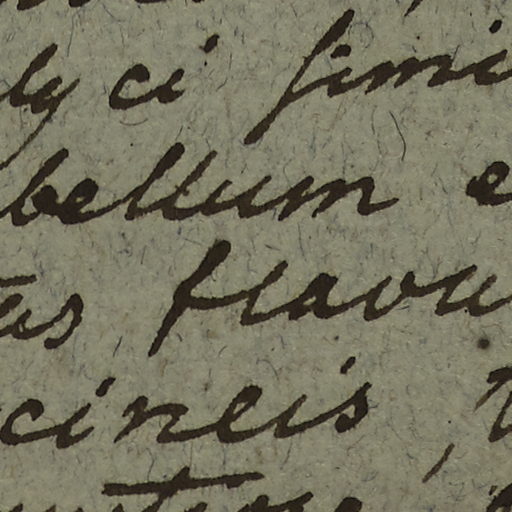 ly ci simi
bellum e
tus, flavu
cineis, t